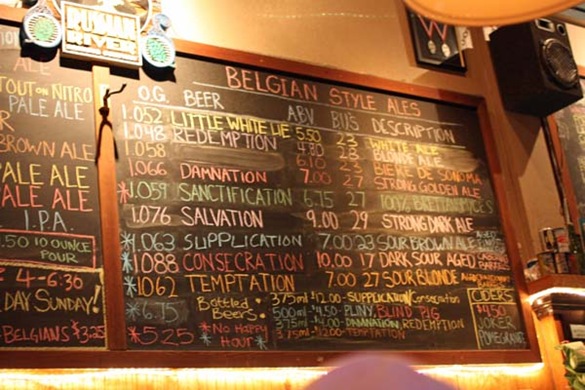 RUSSIAN
RIVER
ALE
STOUT ON NITRO
PALE ALE
BROWN ALE
PALE ALE
PALE ALE
I.P.A.
.50 10 OUNCE
POUR
4-6:30
DAY SUNDAY!
BELGIANS $3.25
BELGIAN STYLE ALES
O.G. BEER ABV BU'S DESCRIPTION
1.052 LITTLE WHITE LIE 5.50 23 WHITE ALE
1.048 REDEMPTION 4.80 23 BLONDE ALE
1.058 6.10 23 BIERE DE SONOMA
1.066 DAMNATION 7.00 27 STRONG GOLDEN ALE
*1.059 SANCTIFICATION 6.75 27 100% BRETTANOMYCES
1.076 SALVATION 9.00 29 STRONG DARK ALE
*1.063 SUPPLICATION 7.00 23 SOUR BROWN ALE AGED
*1.088 CONSECRATION 10.00 17 DARK SOUR AGED BARRELS
*1.062 TEMPTATION 7.00 27 SOUR BLONDE
*6.75 Bottled Beers: 375ml-$12.00-SUPPLICATION/Consecration
500ml-$4.50-PLINY, BLIND PIG
375ml-$4.00-DAMNATION, REDEMPTION
375ml-$12.00-TEMPTATION
*5.25 *No Happy Hour*
CIDERS
$4.50
JOKER
POMEGRANATE